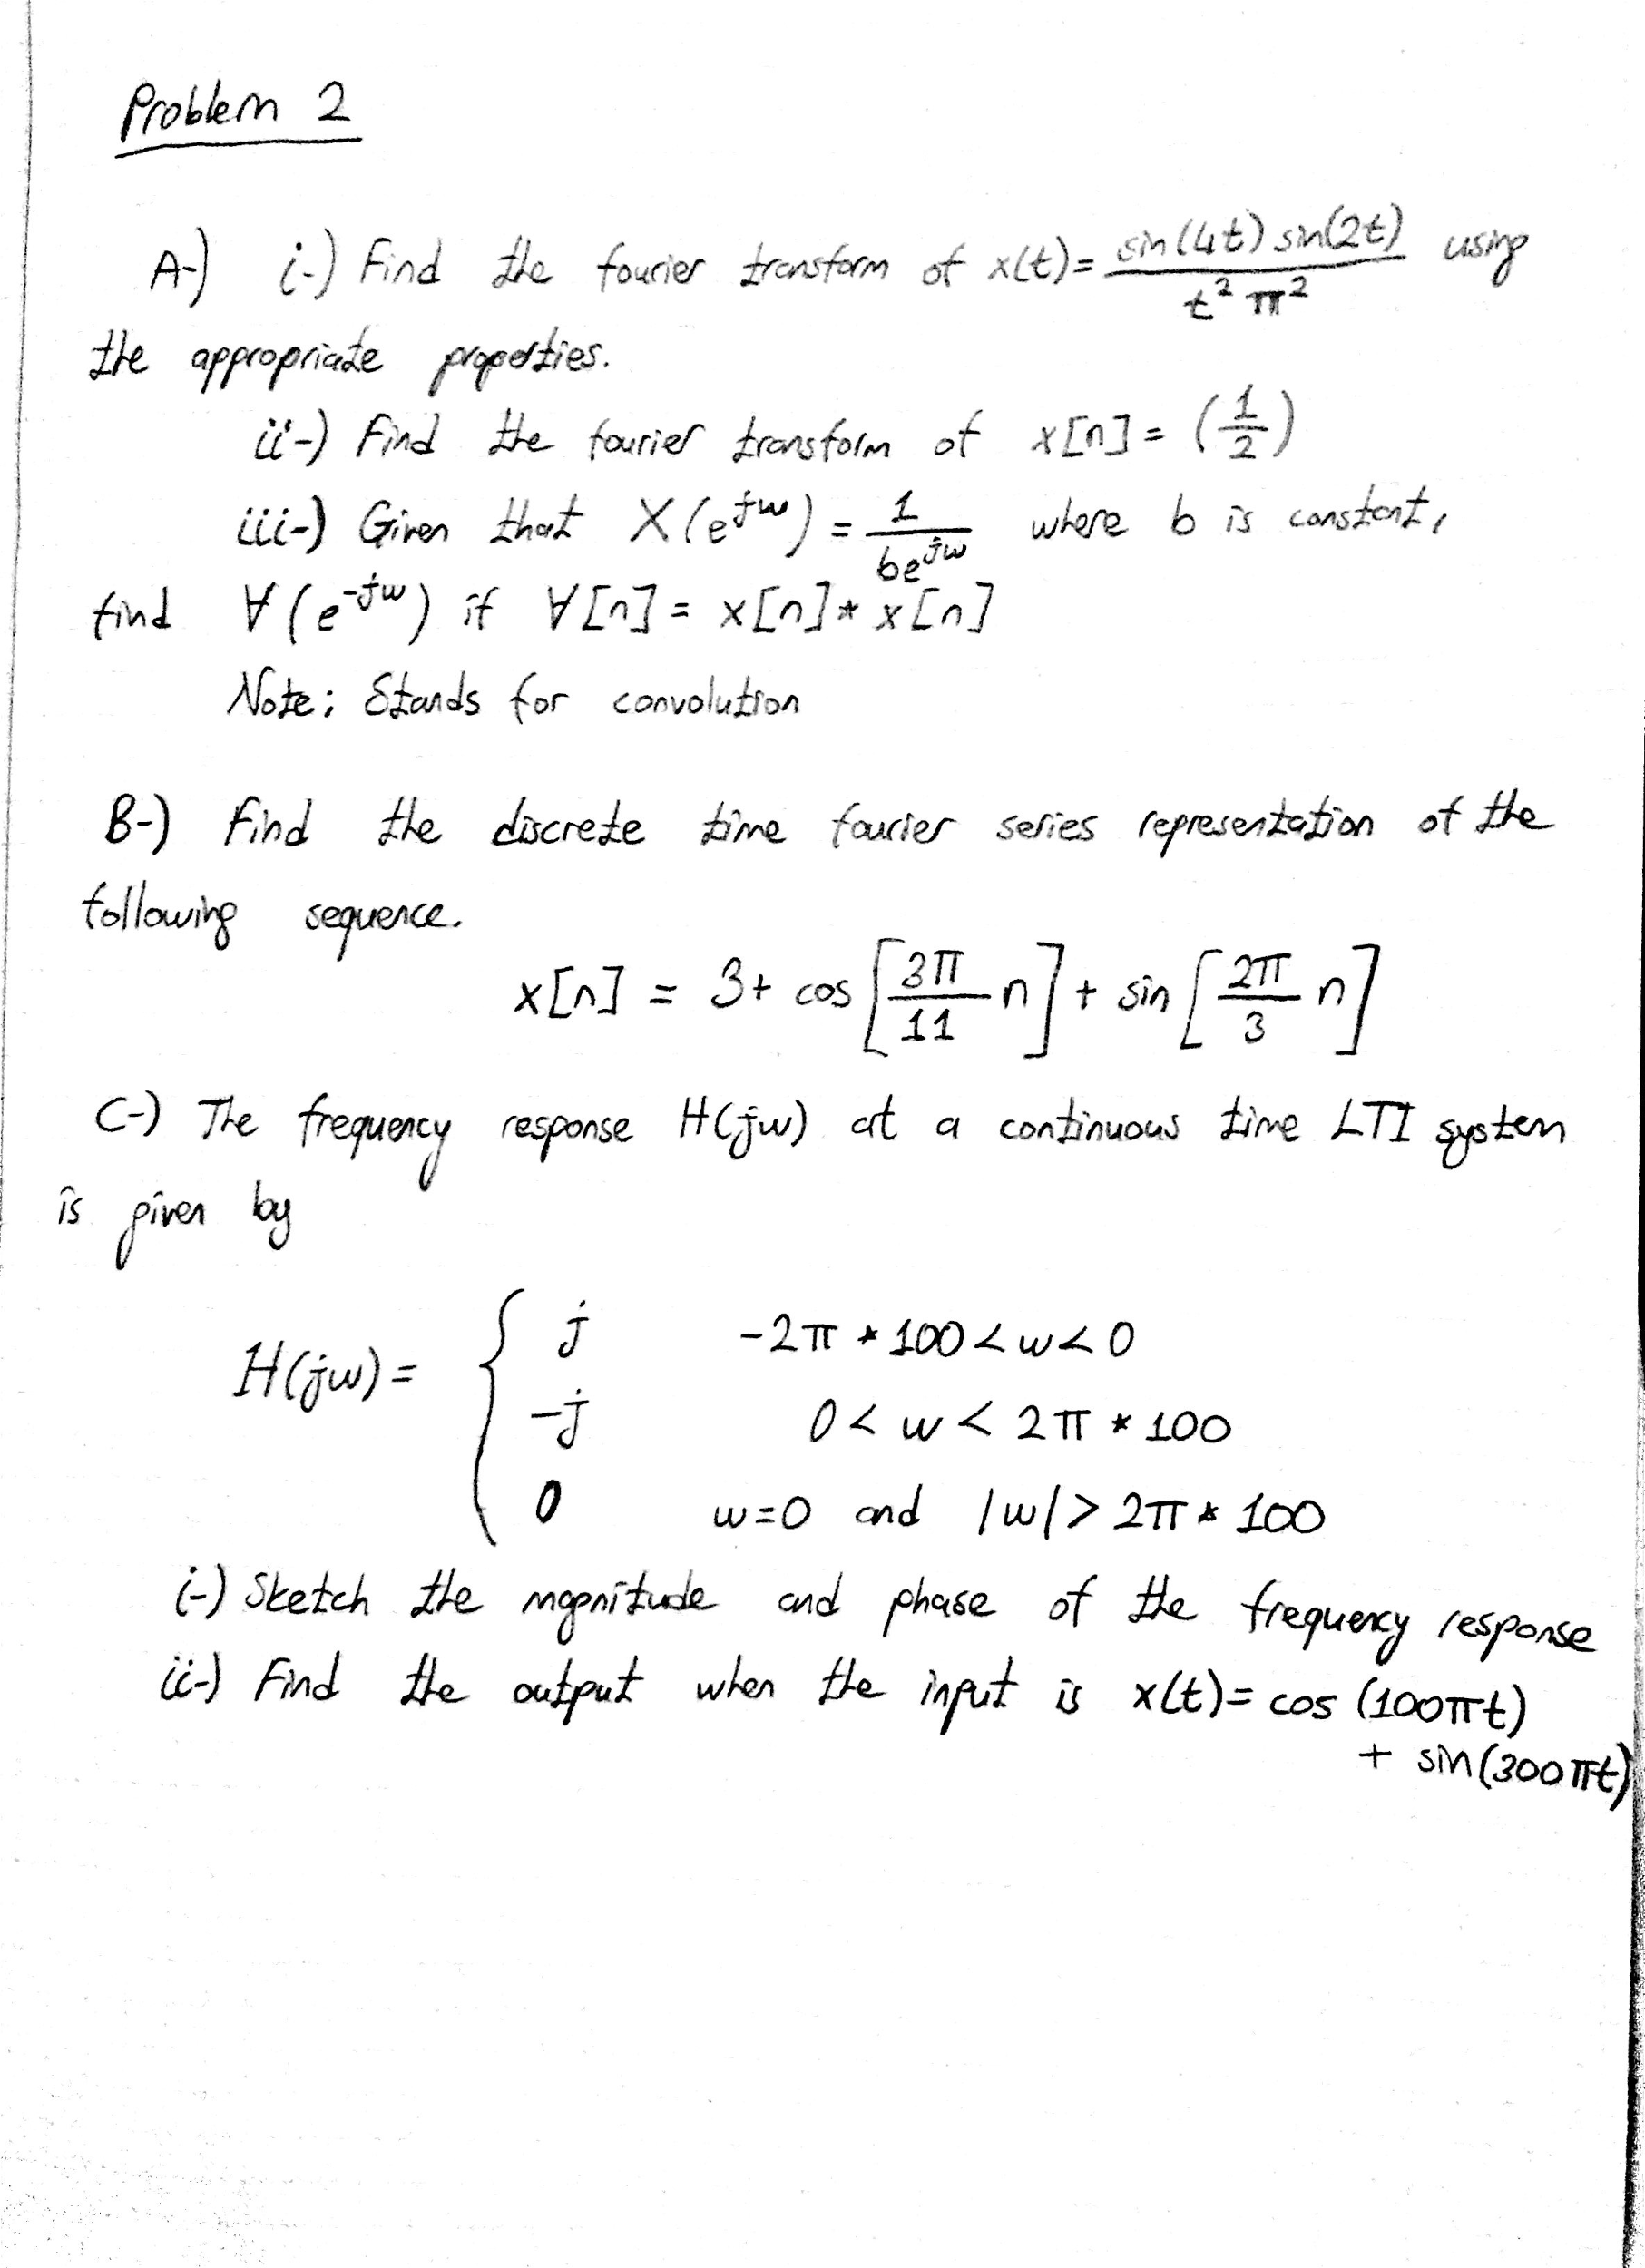 Problem 2
A-) i-) Find the fourier transform of x(t)= sin(4t) sin(2t) / t² π² using
the appropriate properties.
ii-) Find the fourier transform of x[n] = (1/2)
iii-) Given that X(e^jw) = 1 / be^jw where b is constant,
find ∀(e^-jw) if ∀[n] = x[n] * x[n]
Note; Stands for convolution
B-) Find the discrete time fourier series representation of the
following sequence.
x[n] = 3+ cos [3π/11 n] + sin [2π/3 n]
C-) The frequency response H(jw) at a continuous time LTI system
is given by
H(jw) = {
j -2π * 100 < w < 0
-j 0 < w < 2π * 100
0 w=0 and |w| > 2π * 100
i-) Sketch the magnitude and phase of the frequency response
ii-) Find the output when the input is x(t)= cos (100πt)
+ sin(300πt)